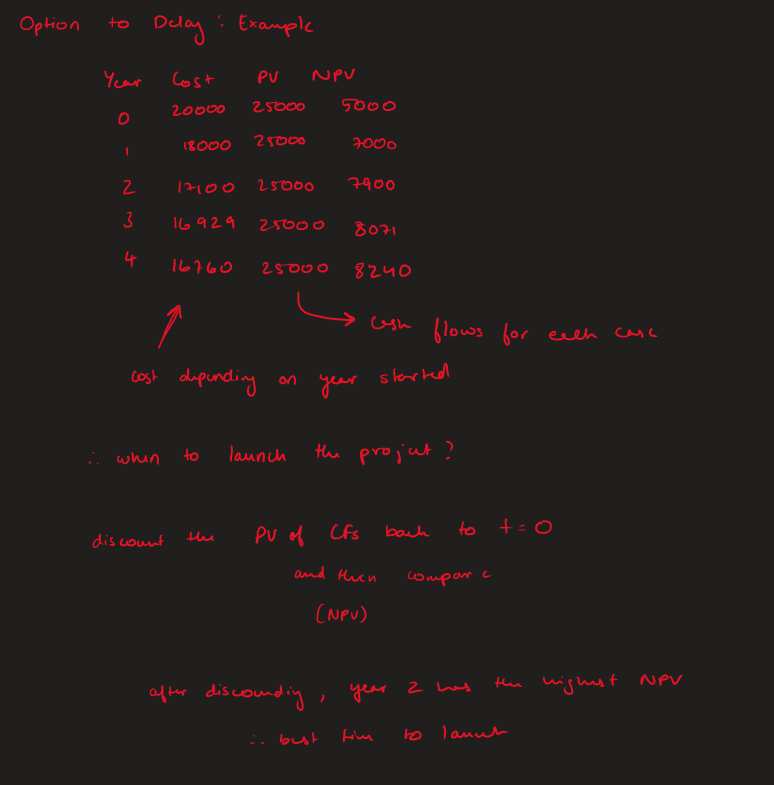 Option to Delay : Example
Year Cost PV NPV
0 20000 25000 5000
1 18000 25000 7000
2 17100 25000 7900
3 16929 25000 8071
4 16760 25000 8240
cash flows for each case
cost depending on year started
∴ when to launch the project?
discount the PV of CFs back to t=0
and then compare
(NPV)
after discounding, year 2 has the highest NPV
∴ best time to launch